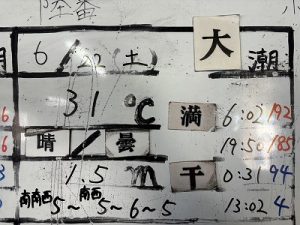 6/22(土) 大潮
31℃ 満 6:02 192
晴/曇 19:50 185
1.5m 干 0:31 94
南南西5~南西5~6~5 13:02 4